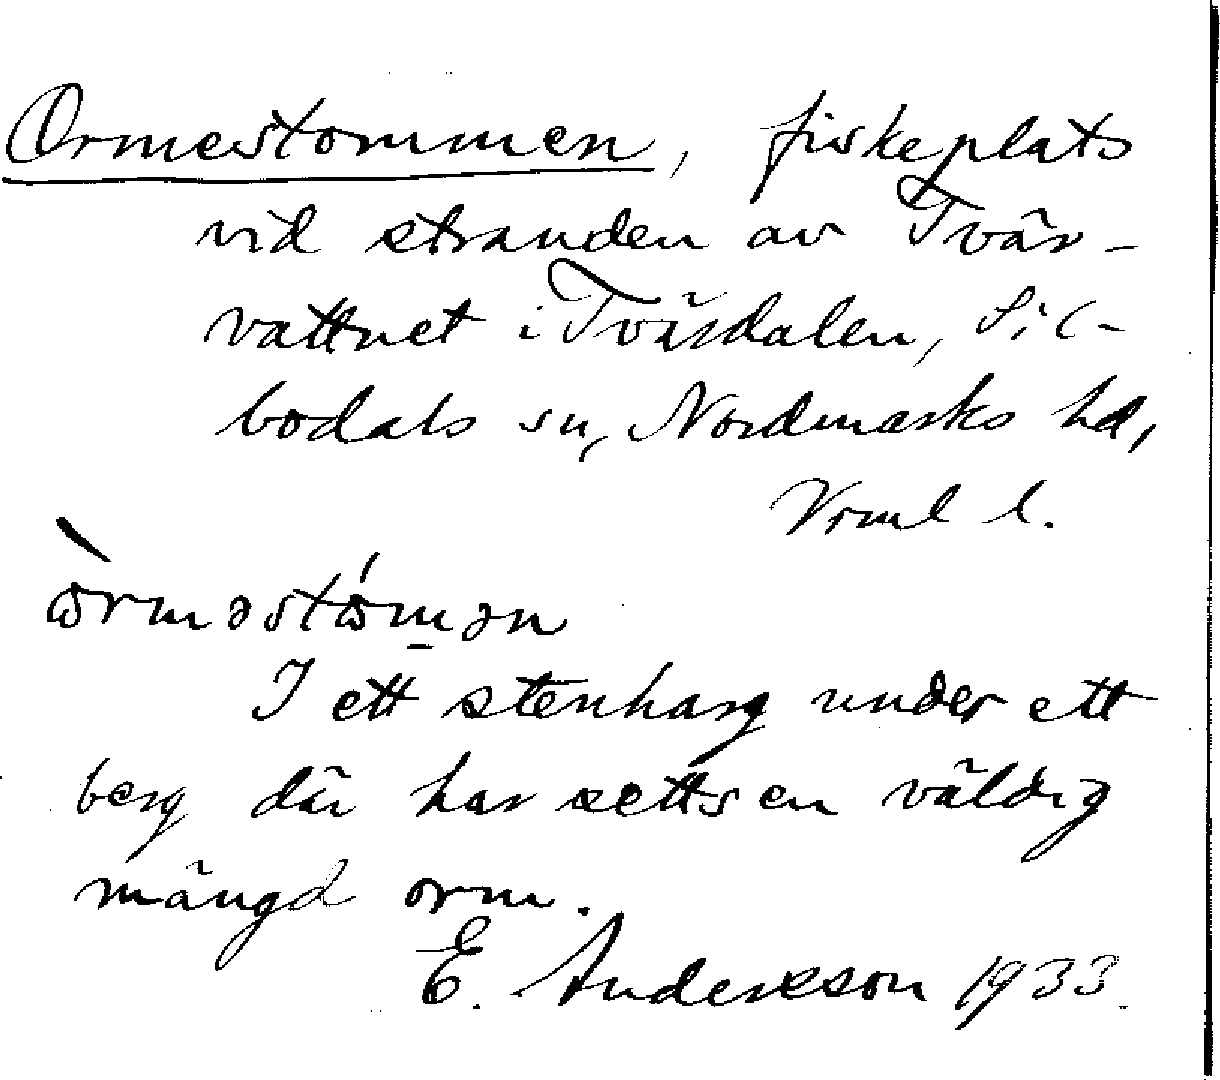 Ormestommen, fiskeplats
vid stranden av Tvär-
vattnet i Tvärdalen, Sil-
bodals sn, Nordmarks hd,
Vrml l.
ὼrməstώm̲ən
I ett stenharg under ett
berg där har setts en väldig
mängd orm.
E. Andersson 1933.